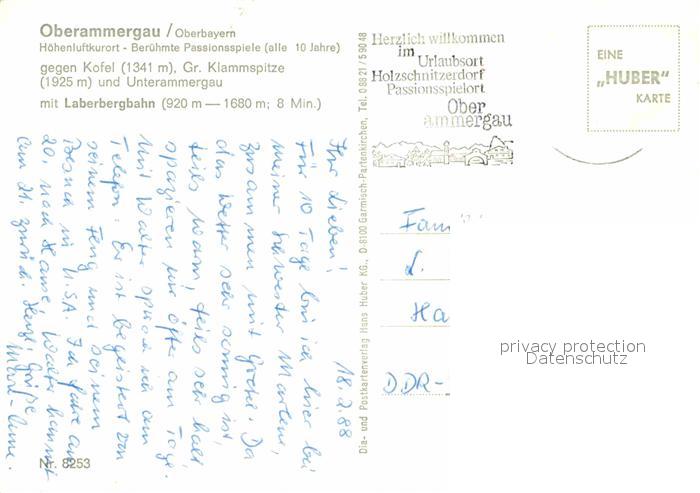 Oberammergau / Oberbayern
Höhenluftkurort - Berühmte Passionsspiele (alle 10 Jahre)
gegen Kofel (1341 m), Gr. Klammspitze
(1925 m) und Unterammergau
mit Laberbergbahn (920 m — 1680 m; 8 Min.)
18.2.88
Ihr Lieben!
Für 10 Tage bin ich hier bei
meiner Schwester Marlene,
zusammen mit Grete. Da
das Wetter sehr sonnig ist,
teils warm, teils sehr kalt
spazieren wir öfter am Tage.
Mit Walter sprach ich am
Telefon. Er ist begeistert von
seinem Flug und seinem
Besuch in USA. Ich fahre am
20. nach Hause, Walter kommt
am 21. zurück. Herzl. Grüße
Marie-Anne.
Nr. 8253
Dia- und Postkartenverlag Hans Huber KG., D-8100 Garmisch-Partenkirchen, Tel. 0 88 21 / 5 90 48
Herzlich willkommen
im
Urlaubsort
Holzschnitzerdorf
Passionsspielort
Ober
ammergau
EINE
„HUBER"
KARTE
Fam
L.
Ha
DDR-
privacy protection
Datenschutz